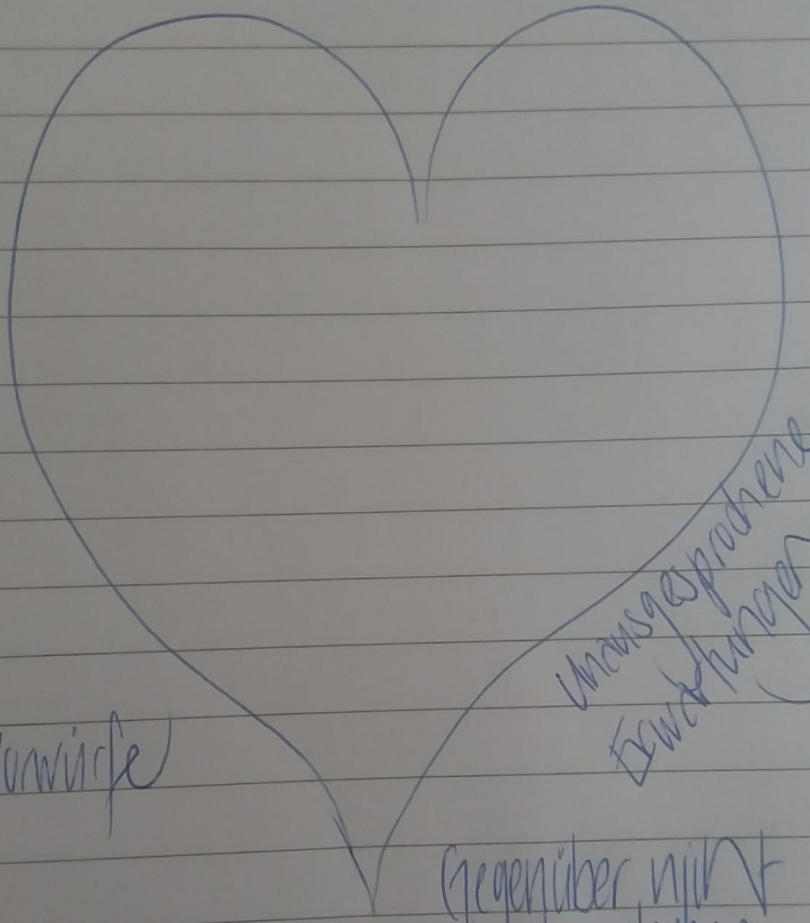 unausgesprochene
Erwartungen
orwürfe
Gegenüber, nimt